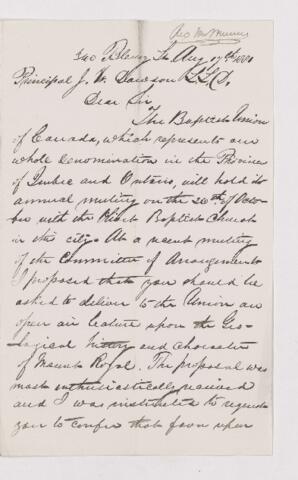 Geo McMurray
340 Bleury St Aug 17th 1880
Principal J. W. Dawson L.L.D.
Dear Sir
The Baptist Union
of Canada, which represents our
whole denomination in the Province
of Quebec and Ontario, will hold its
annual meeting on the 20th of Octo
ber with the Olivet Baptist Church
in the city. At a recent meeting
of the Committee of Arrangements
I proposed that you should be
asked to deliver to the Union an
open air lecture upon the Geo-
logical history and character
of Mount Royal. The proposal was
most enthusiastically received
and I was instructed to request
you to confer that favor upon